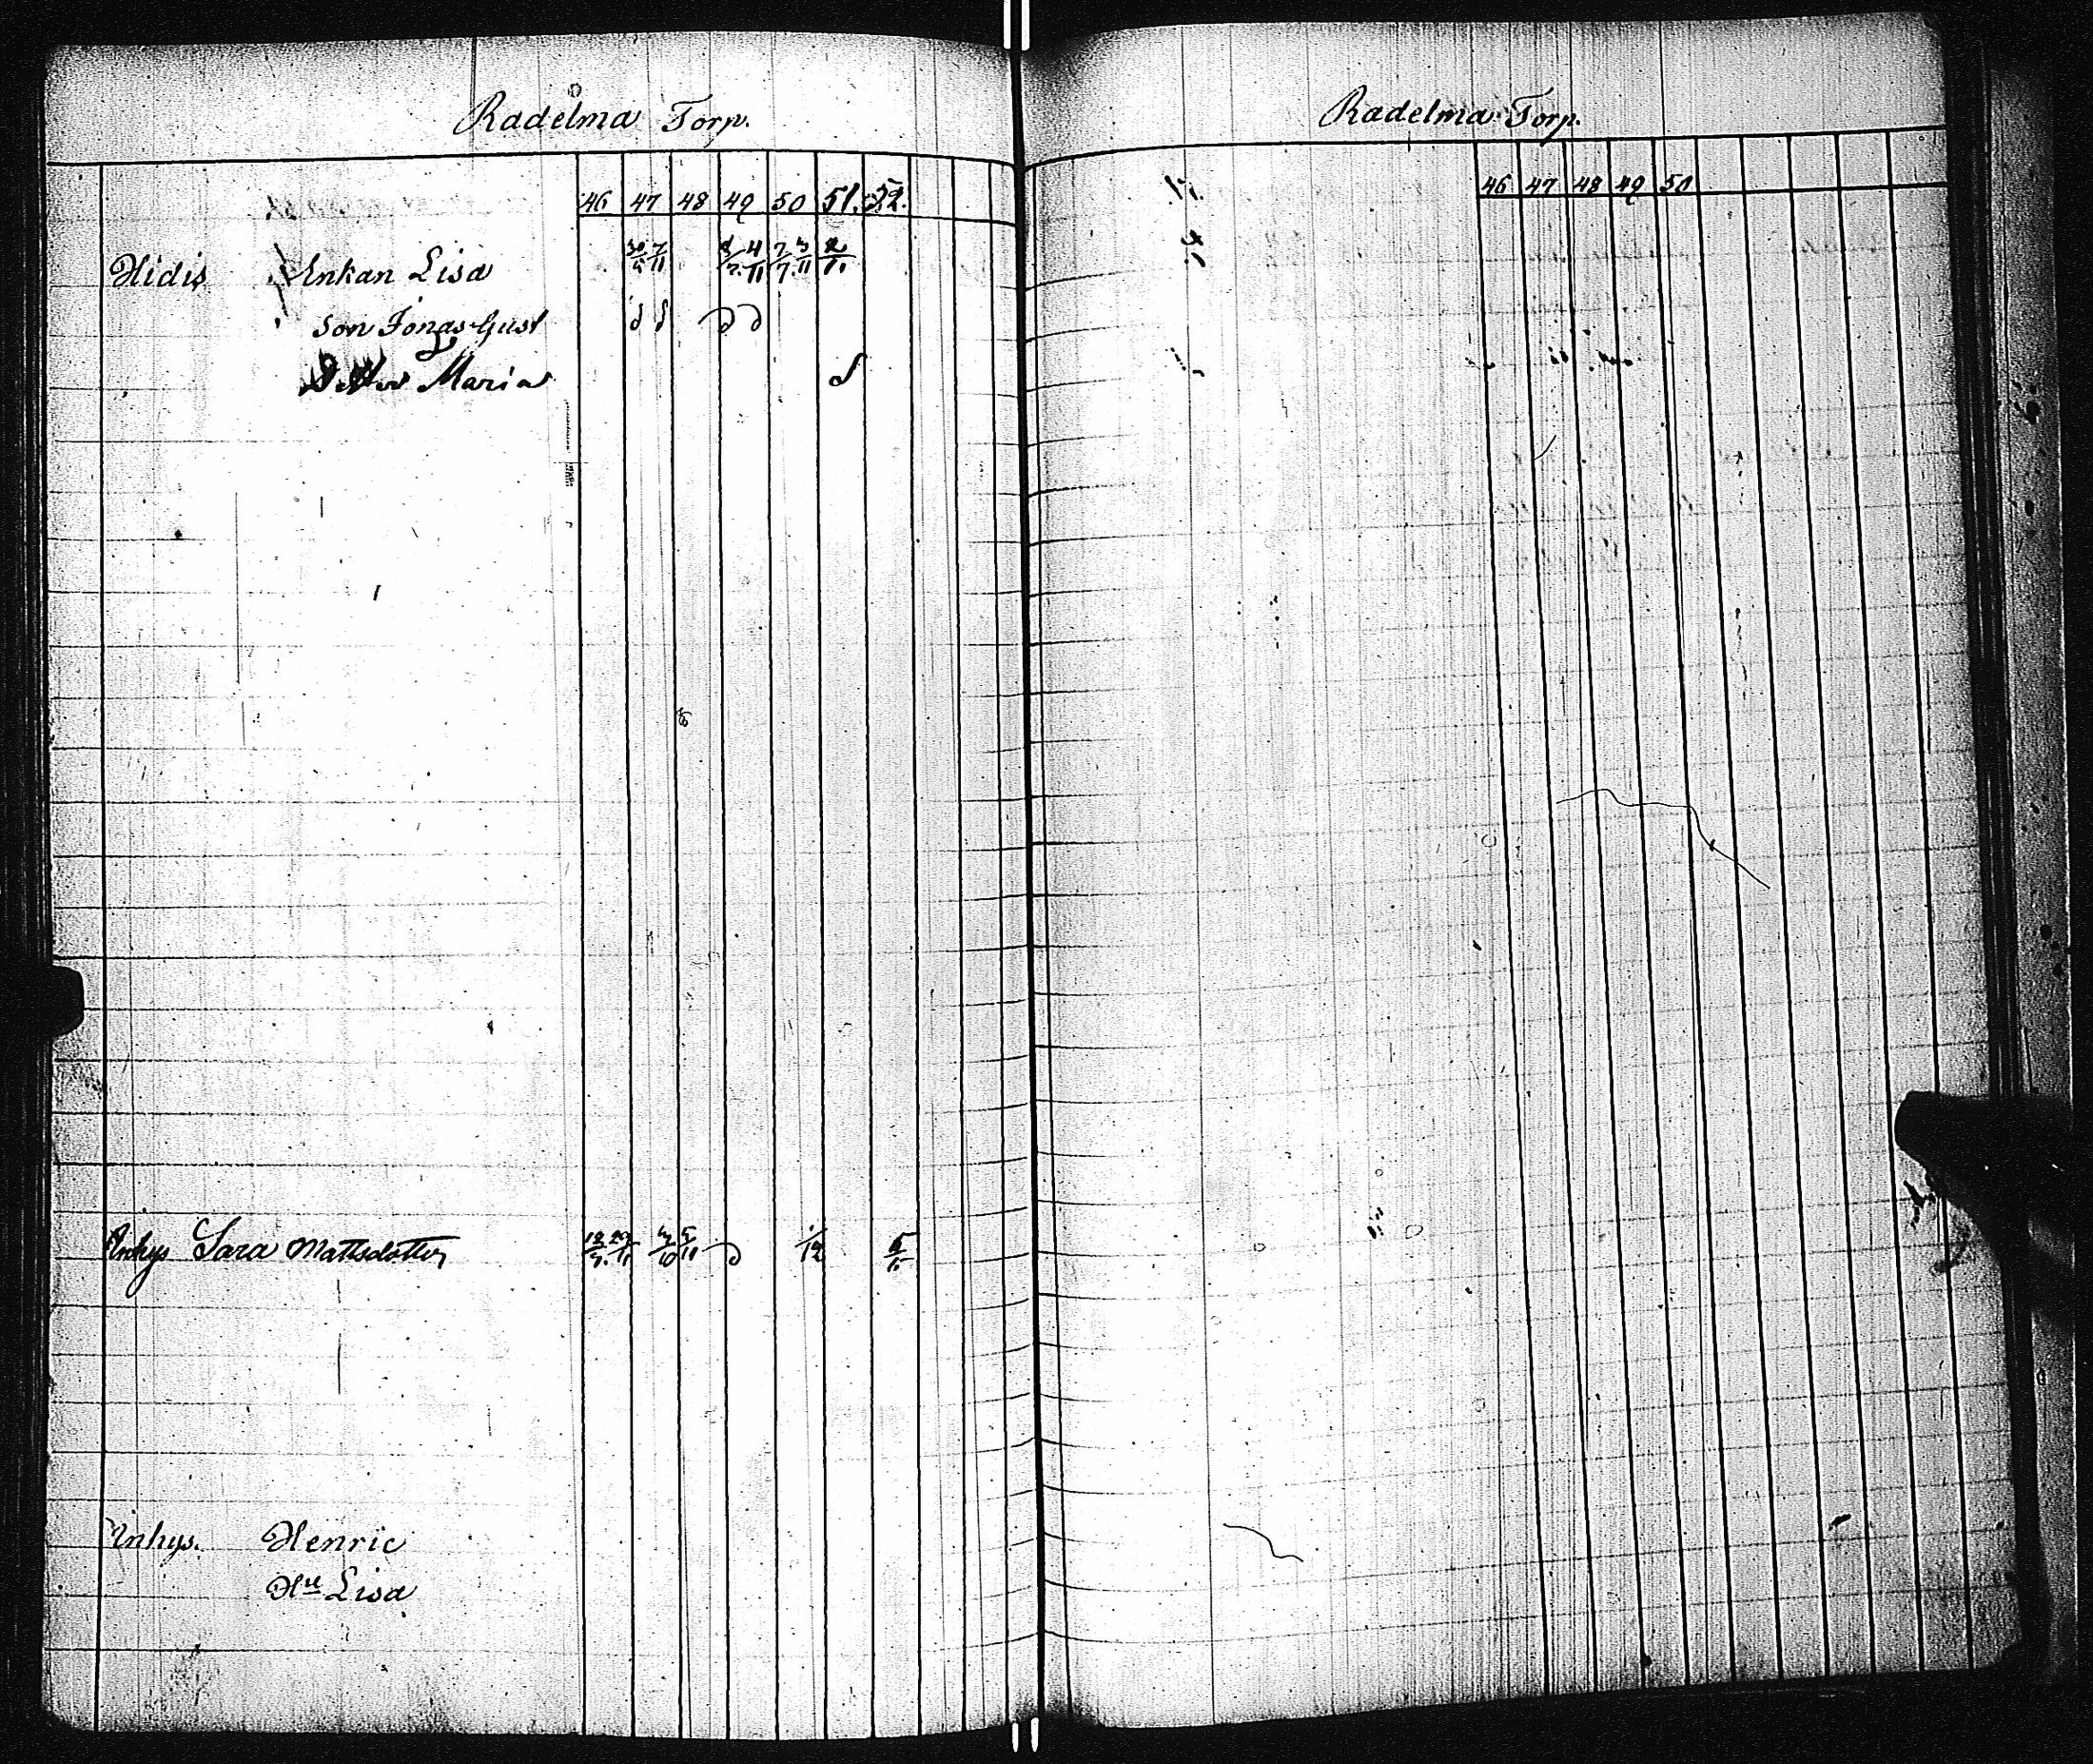 Radelma Torp.
46 47 48 49 50 51. 52.
Hidis Enkan Lisa 30/5 7/11 8/7. 4/11 7/7. 3/11
Son Jonas Gust
Dotter Maria
Inhys Sara Mattsdotter /12
Inhys. Henric
Hu Lisa
Radelma Torp.
46 47 48 49 50